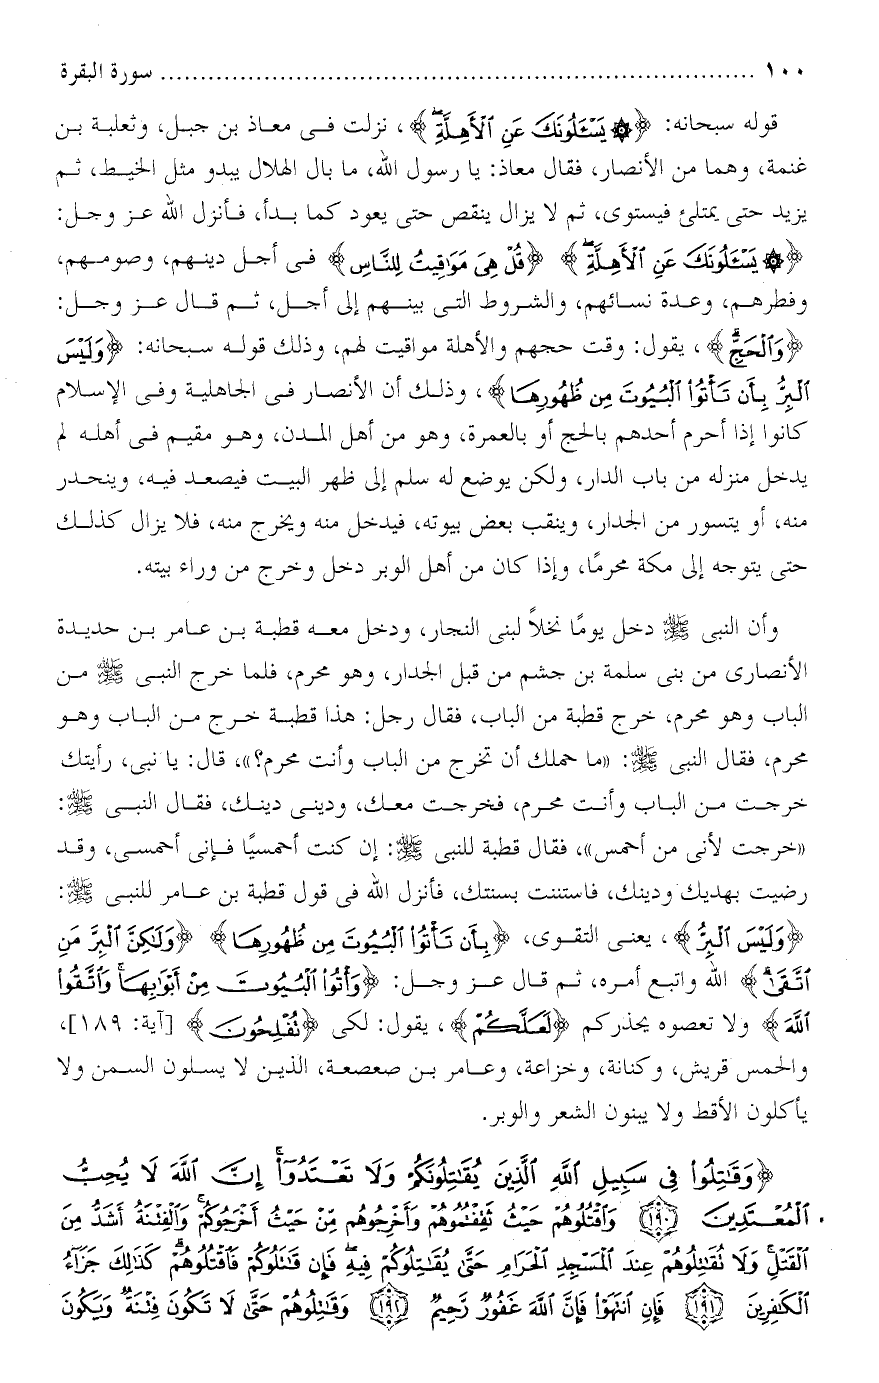 ١٠٠ ........................................................................ سورة البقرة
قوله سبحانه: ﴿۞ يَسْـَٔلُونَكَ عَنِ ٱلْأَهِلَّةِۖ﴾، نزلت فى معاذ بن جبل، وثعلبة بن
غنمة، وهما من الأنصار، فقال معاذ: يا رسول الله، ما بال الهلال يبدو مثل الخيط، ثم
يزيد حتى يمتلئ فيستوى، ثم لا يزال ينقص حتى يعود كما بدأ، فأنزل الله عز وجل:
﴿۞ يَسْـَٔلُونَكَ عَنِ ٱلْأَهِلَّةِۖ﴾ ﴿قُلْ هِىَ مَوَٰقِيتُ لِلنَّاسِ﴾ فى أجل دينهم، وصومهم،
وفطرهم، وعدة نسائهم، والشروط التى بينهم إلى أجل، ثم قال عز وجل:
﴿وَٱلْحَجِّۗ﴾، يقول: وقت حجهم والأهلة مواقيت لهم، وذلك قوله سبحانه: ﴿وَلَيْسَ
ٱلْبِرُّ بِأَن تَأْتُوا۟ ٱلْبُيُوتَ مِن ظُهُورِهَا﴾، وذلك أن الأنصار فى الجاهلية وفى الإسلام
كانوا إذا أحرم أحدهم بالحج أو بالعمرة، وهو من أهل المدن، وهو مقيم فى أهله لم
يدخل منزله من باب الدار، ولكن يوضع له سلم إلى ظهر البيت فيصعد فيه، وينحدر
منه، أو يتسور من الجدار، وينقب بعض بيوته، فيدخل منه ويخرج منه، فلا يزال كذلك
حتى يتوجه إلى مكة محرمًا، وإذا كان من أهل الوبر دخل وخرج من وراء بيته.
وأن النبى ﷺ دخل يومًا نخلاً لبنى النجار، ودخل معه قطبة بن عامر بن حديدة
الأنصارى من بنى سلمة بن جشم من قبل الجدار، وهو محرم، فلما خرج النبى ﷺ من
الباب وهو محرم، خرج قطبة من الباب، فقال رجل: هذا قطبة خرج من الباب وهو
محرم، فقال النبى ﷺ: «ما حملك أن تخرج من الباب وأنت محرم؟»، قال: يا نبى، رأيتك
خرجت من الباب وأنت محرم، فخرجت معك، ودينى دينك، فقال النبى ﷺ:
«خرجت لأنى من أحمس»، فقال قطبة للنبى ﷺ: إن كنت أحمسيًا فإنى أحمسى، وقد
رضيت بهديك ودينك، فاستننت بسنتك، فأنزل الله فى قول قطبة بن عامر للنبى ﷺ:
﴿وَلَيْسَ ٱلْبِرُّ﴾، يعنى التقوى، ﴿بِأَن تَأْتُوا۟ ٱلْبُيُوتَ مِن ظُهُورِهَا﴾ ﴿وَلَٰكِنَّ ٱلْبِرَّ مَنِ
ٱتَّقَىٰۗ﴾ الله واتبع أمره، ثم قال عز وجل: ﴿وَأْتُوا۟ ٱلْبُيُوتَ مِنْ أَبْوَٰبِهَاۚ وَٱتَّقُوا۟
ٱللَّهَ﴾ ولا تعصوه يحذركم ﴿لَعَلَّكُمْ﴾، يقول: لكى ﴿تُفْلِحُونَ﴾ [آية: ١٨٩]،
والحمس قريش، وكنانة، وخزاعة، وعامر بن صعصعة، الذين لا يسلون السمن ولا
يأكلون الأقط ولا يبنون الشعر والوبر.
﴿وَقَٰتِلُوا۟ فِى سَبِيلِ ٱللَّهِ ٱلَّذِينَ يُقَٰتِلُونَكُمْ وَلَا تَعْتَدُوٓا۟ۚ إِنَّ ٱللَّهَ لَا يُحِبُّ
ٱلْمُعْتَدِينَ ١٩٠ وَٱقْتُلُوهُمْ حَيْثُ ثَقِفْتُمُوهُمْ وَأَخْرِجُوهُم مِّنْ حَيْثُ أَخْرَجُوكُمْۚ وَٱلْفِتْنَةُ أَشَدُّ مِنَ
ٱلْقَتْلِۚ وَلَا تُقَٰتِلُوهُمْ عِندَ ٱلْمَسْجِدِ ٱلْحَرَامِ حَتَّىٰ يُقَٰتِلُوكُمْ فِيهِۖ فَإِن قَٰتَلُوكُمْ فَٱقْتُلُوهُمْۗ كَذَٰلِكَ جَزَآءُ
ٱلْكَٰفِرِينَ ١٩١ فَإِنِ ٱنتَهَوْا۟ فَإِنَّ ٱللَّهَ غَفُورٌ رَّحِيمٌ ١٩٢ وَقَٰتِلُوهُمْ حَتَّىٰ لَا تَكُونَ فِتْنَةٌ وَيَكُونَ